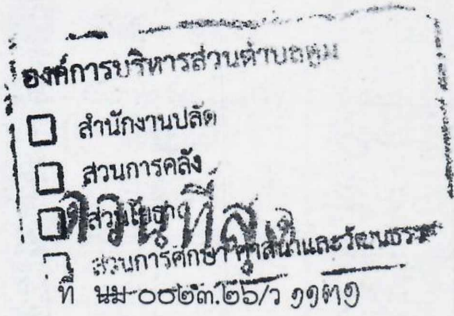 องค์การบริหารส่วนตำบลตูม
สำนักงานปลัด
ส่วนการคลัง
ส่วนโยธา
ด่วนที่สุด
ส่วนการศึกษา ศาสนาและวัฒนธรรม
ที่ นม ๐๐๒๓.๒๖/ว